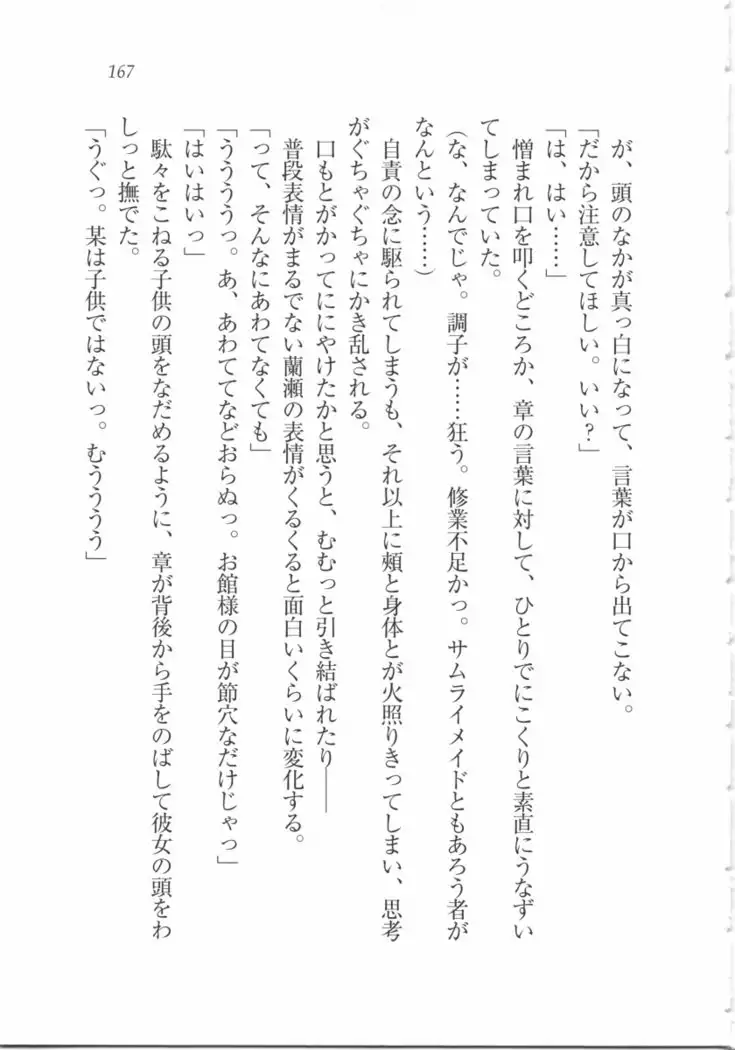 が、頭のなかが真っ白になって、言葉が口から出てこない。
「だから注意してほしい。いい？」
「は、はい……」
憎まれ口を叩くどころか、章の言葉に対して、ひとりでにこくりと素直にうなずい
てしまっていた。
（な、なんでじゃ。調子が……狂う。修業不足かっ。サムライメイドともあろう者が
なんという……）
自責の念に駆られてしまうも、それ以上に頬と身体とが火照りきってしまい、思考
がぐちゃぐちゃにかき乱される。
口もとがかってににやけたかと思うと、むむっと引き結ばれたり――
普段表情がまるでない蘭瀬の表情がくるくると面白いくらいに変化する。
「って、そんなにあわてなくても」
「うううっ。あ、あわててなどおらぬっ。お館様の目が節穴なだけじゃっ」
「はいはいっ」
駄々をこねる子供の頭をなだめるように、章が背後から手をのばして彼女の頭をわ
しっと撫でた。
「うぐっ。某は子供ではないっ。むうううう」
167